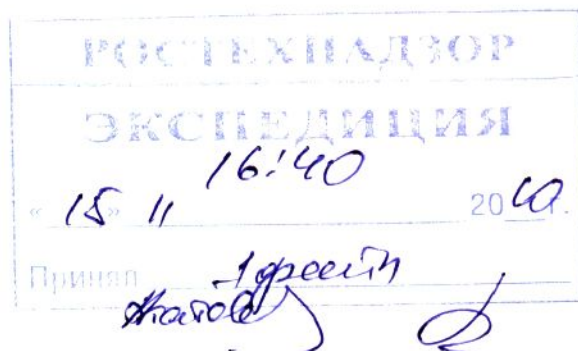 РОСТЕХНАДЗОР
ЭКСПЕДИЦИЯ
16:40
«15» 11 2010 г.
Принял